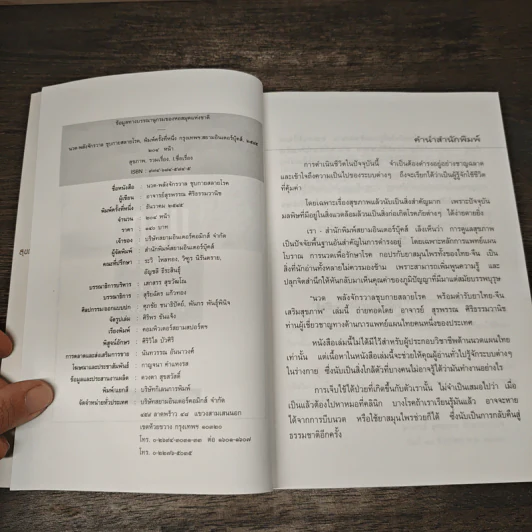 ข้อมูลทางบรรณานุกรมของหอสมุดแห่งชาติ
นวด พลังจักรวาล ชุบกายสลายโรค, พิมพ์ครั้งที่หนึ่ง กรุงเทพฯ:สยามอินเตอร์บุ๊คส์, ๒๕๔๕
๒๐๔ หน้า
สุขภาพ, รวมเรื่อง, I.ชื่อเรื่อง
ISBN :
ชื่อหนังสือ : นวด พลังจักรวาล ชุบกายสลายโรค
ผู้เขียน : อาจารย์สุรพรรณ ศิริธรรมวานิช
พิมพ์ครั้งที่หนึ่ง : ธันวาคม ๒๕๔๕
จำนวน : ๒๐๔ หน้า
ราคา : ๑๘๐ บาท
เจ้าของ : บริษัทสยามอินเตอร์คอมมิกส์ จำกัด
ผู้จัดพิมพ์ : สำนักพิมพ์สยามอินเตอร์บุ๊คส์
คณะที่ปรึกษา : ระวิ โหลทอง, วิฑูร นิรันตราย,
อัญชลี ธีระสินธุ์
บรรณาธิการบริหาร : เสกสรร สุขวัฒโน
บรรณาธิการ : สุริยฉัตร แก้วทอง
ศิลปกรรมออกแบบปก : ศุภชัย
จัดรูปเล่ม : ศิริพร ขันแข็ง
เรียงพิมพ์ : คอมพิวเตอร์สยามสปอร์ตฯ
พิสูจน์อักษร : ศิริวิไล บัวศิริ
การตลาดและส่งเสริมการขาย : นันทวรรณ อันนาวงศ์
โฆษณาและประชาสัมพันธ์ : กาญจนา คำแหงรส
ข้อมูลและประสานงานผลิต : ดวงตา สุขสวัสดิ์
พิมพ์/แยกสี : บริษัทกิเลนการพิมพ์
จัดจำหน่ายทั่วประเทศ : บริษัทสยามอินเตอร์คอมมิกส์ จำกัด
ลาดพร้าว ๔๘ แขวงสามเสนนอก
เขตห้วยขวาง กรุงเทพฯ ๑๐๓๒๐
โทร. ต่อ
โทร.
คำนำสำนักพิมพ์
การดำเนินชีวิตในปัจจุบันนี้ จำเป็นต้องดำรงอยู่อย่างชาญฉลาด
และเข้าใจถึงความเป็นไปของระบบต่างๆ ถึงจะเรียกได้ว่าเป็นผู้รู้จักใช้ชีวิต
ที่คุ้มค่า
โดยเฉพาะเรื่องสุขภาพแล้วนับเป็นสิ่งสำคัญมาก เพราะปัจจุบัน
มลพิษที่มีอยู่ในสิ่งแวดล้อมล้วนเป็นสิ่งก่อเกิดโรคภัยต่างๆ ได้ง่ายดายยิ่ง
เรา - สำนักพิมพ์สยามอินเตอร์บุ๊คส์ เล็งเห็นว่า การดูแลสุขภาพ
เป็นปัจจัยพื้นฐานอันสำคัญในการดำรงอยู่ โดยเฉพาะหลักการแพทย์แผน
โบราณ การนวดเพื่อรักษาโรค กอปรกับยาสมุนไพรทั้งของไทย-จีน เป็น
สิ่งที่นักอ่านทั้งหลายไม่ควรมองข้าม เพราะสามารถเพิ่มพูนความรู้ และ
ปลุกจิตสำนึกให้หันกลับมาเห็นคุณค่าของภูมิปัญญาที่มีมาแต่สมัยบรรพบุรุษ
"นวด พลังจักรวาลชุบกายสลายโรค พร้อมตำรับยาไทย-จีน
เสริมสุขภาพ" เล่มนี้ ถ่ายทอดโดย อาจารย์ สุรพรรณ ศิริธรรมวานิช
ท่านผู้เชี่ยวชาญทางด้านการแพทย์แผนไทยคนหนึ่งของประเทศ
หนังสือเล่มนี้ไม่ได้มีไว้สำหรับผู้ประกอบวิชาชีพด้านนวดแผนไทย
เท่านั้น แต่เนื้อหาในหนังสือเล่มนี้จะช่วยให้คุณผู้อ่านทั่วไปรู้จักระบบต่างๆ
ในร่างกาย ซึ่งนับเป็นสิ่งใกล้ตัวที่บางคนไม่อาจรู้ได้ว่ามันทำงานอย่างไร
การเจ็บไข้ได้ป่วยที่เกิดขึ้นกับตัวเรานั้น ไม่จำเป็นเสมอไปว่า เมื่อ
เป็นแล้วต้องไปหาหมอที่คลินิก บางโรคถ้าเราเรียนรู้มันแล้ว อาจจะหาย
ได้จากการบีบนวด หรือใช้ยาสมุนไพรช่วยก็ได้ ซึ่งนับเป็นการกลับคืนสู่
ธรรมชาติอีกครั้ง